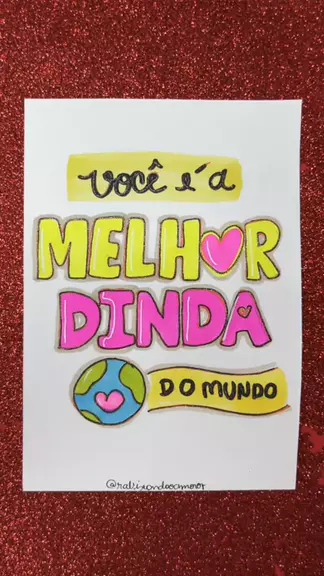 você é a
MELHOR
DINDA
DO MUNDO